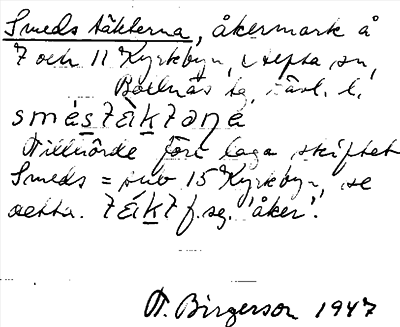 Smeds täkterna, åkermark å
7 och 11 Kyrkbyn, Alfta sn,
Bollnäs tg, Gävl. l.
Tillhörde före laga skiftet
Smeds = nuv 15 Kyrkbyn, se
detta. f. sg. 'åker'.
T. Birgerson 1947